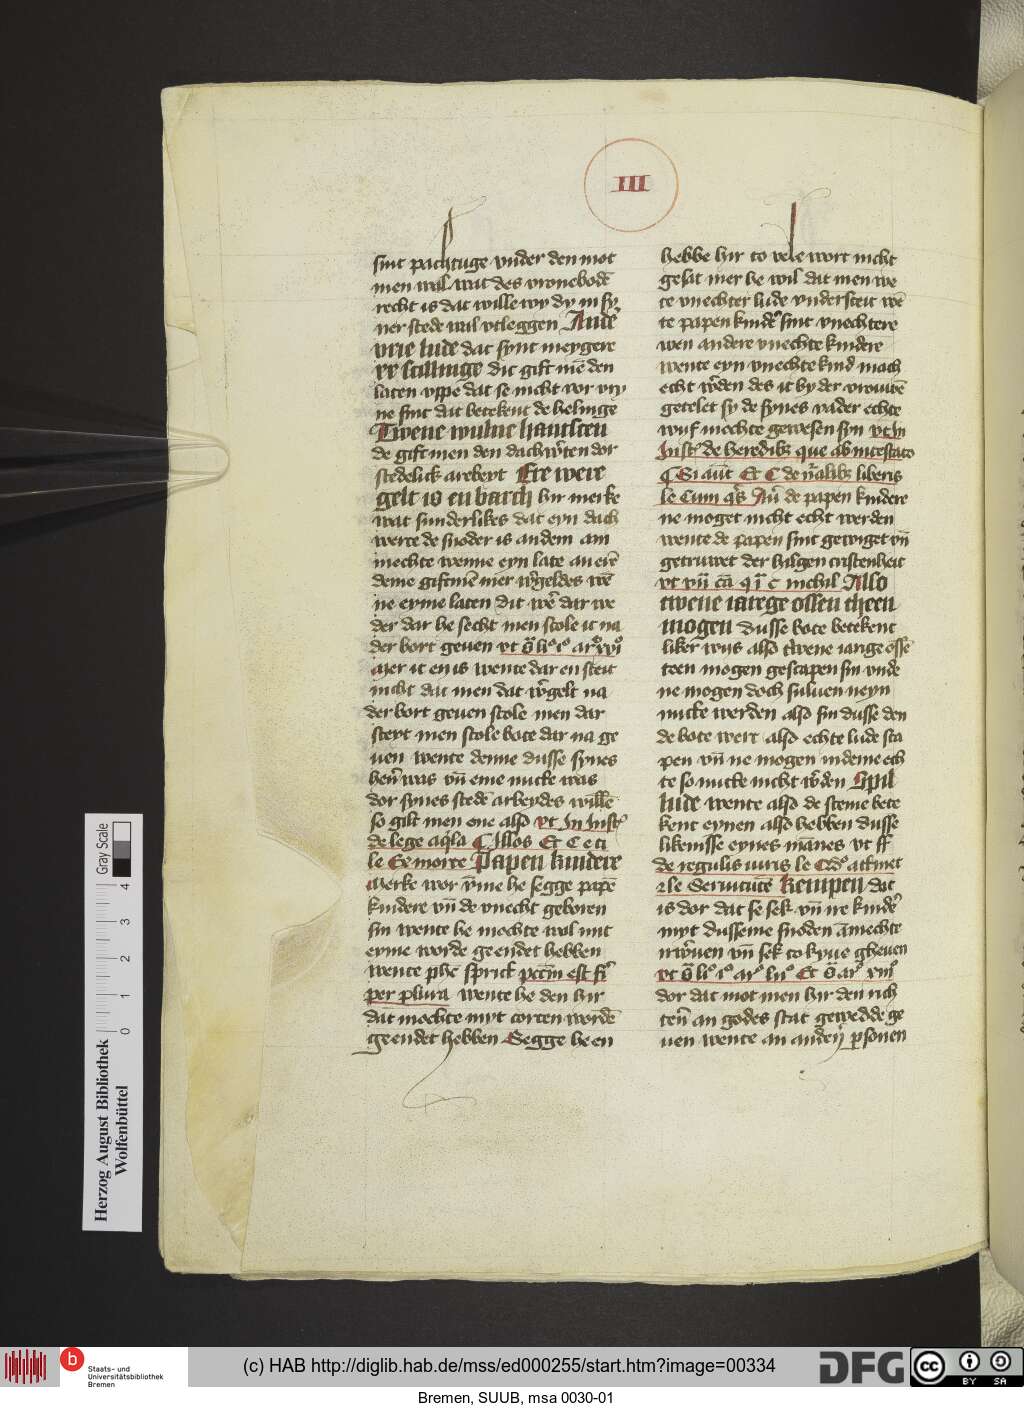 III
sint pachtuge vnder den mot
men wal wat des vronebodē
recht is dat wille wy dy in sy
ner stede wil vtleggen Ande
vrie lude dat synt meygere
re scillinge dit gift mē den
laten vppe dat se nicht vor vry
ne sint dat betekent de helinge
Twene wulne hantscen
de gift men den dachw̄ten dor
stedelick arebeyt Ere were
gelt is en barch hir merke
wat sunderlikes dat eyn dach
werte de snoder is andem am
mechte wenne eyn late an eīē
deme giftmē mer w̄geldes wē
ne eyme laten dit wē dar we
der dar he secht men scole it na
der bort geuen vt
mer it en is wente dar en steit
nicht dat men dat w̄gelt na
der bort geuen scole men dar
steyt men scole bote dar na ge
uen wente denne dusse synes
hen̄ was vn̄ eme nutte was
dor synes stedē arbeydes willē
so gilt men ene also vt In Inst
de lege aq̄la ¶ Illos Et C e ti
le Ex morte Papen kindere
Merke wor v̄me he segge papē
kindere vn̄ de vnecht geboren
sin wente he mochte wol mit
eyme worde geendet hebben
wente phē sprick pctm̄ est
per plura wente he den hir
dat mochte myt corten wordē
geendet hebben Segge he en
hebbe hir to vele wort nicht
gesat mer he wil dat men we
te vnechter lude vndersteit wē
te papen kindē sint vnechtere
wen andere vnechte kindere
wente eyn vnechte kind mach
echt w̄den des it by der vrouwē
getelet sy de synes vader echte
wyf mochte gewesen syn vt In
Inst de heredib que ab intestato
¶ Si aūt Et C de n̄alib liberis
le Cum q̄s Au de papen kindere
ne moget nicht echt werden
wente de papen sint gewiget vn̄
getruwet der hilgen cristenheit
vt Also
twene iarege ossen theen
mogen Dusse bote betekent
liker wys also twene iarige ossē
teen mogen gescapen sin vnde
ne mogen doch suluen neyn
nutte werden also sin dusse den
de bote wert also echte lude sca
pen vn̄ ne mogen indeme ech
te so nutte nicht w̄den Spil
lude wente also de steme bete
kent eynen also hebben dusse
likenisse eynes mānes vt ff
de regulis iuris le
le Seruitutē kempen dat
is dor dat se sek vn̄ ne kindē
myt dusseme snoden āmechte
vn̄ sek to kyue gheuen
vt
dor dat mot men hir den rich
ten̄ an godes stat gewedde ge
uen wente an anden̄ psonen
Herzog August Bibliothek
Wolfenbüttel
0 1 2 3 4
Gray Scale
b
Staats- und
Universitätsbibliothek
Bremen
(c) HAB http://diglib.hab.de/mss/ed000255/start.htm?image=00334
DFG
cc BY SA
Bremen, SUUB, msa 0030-01